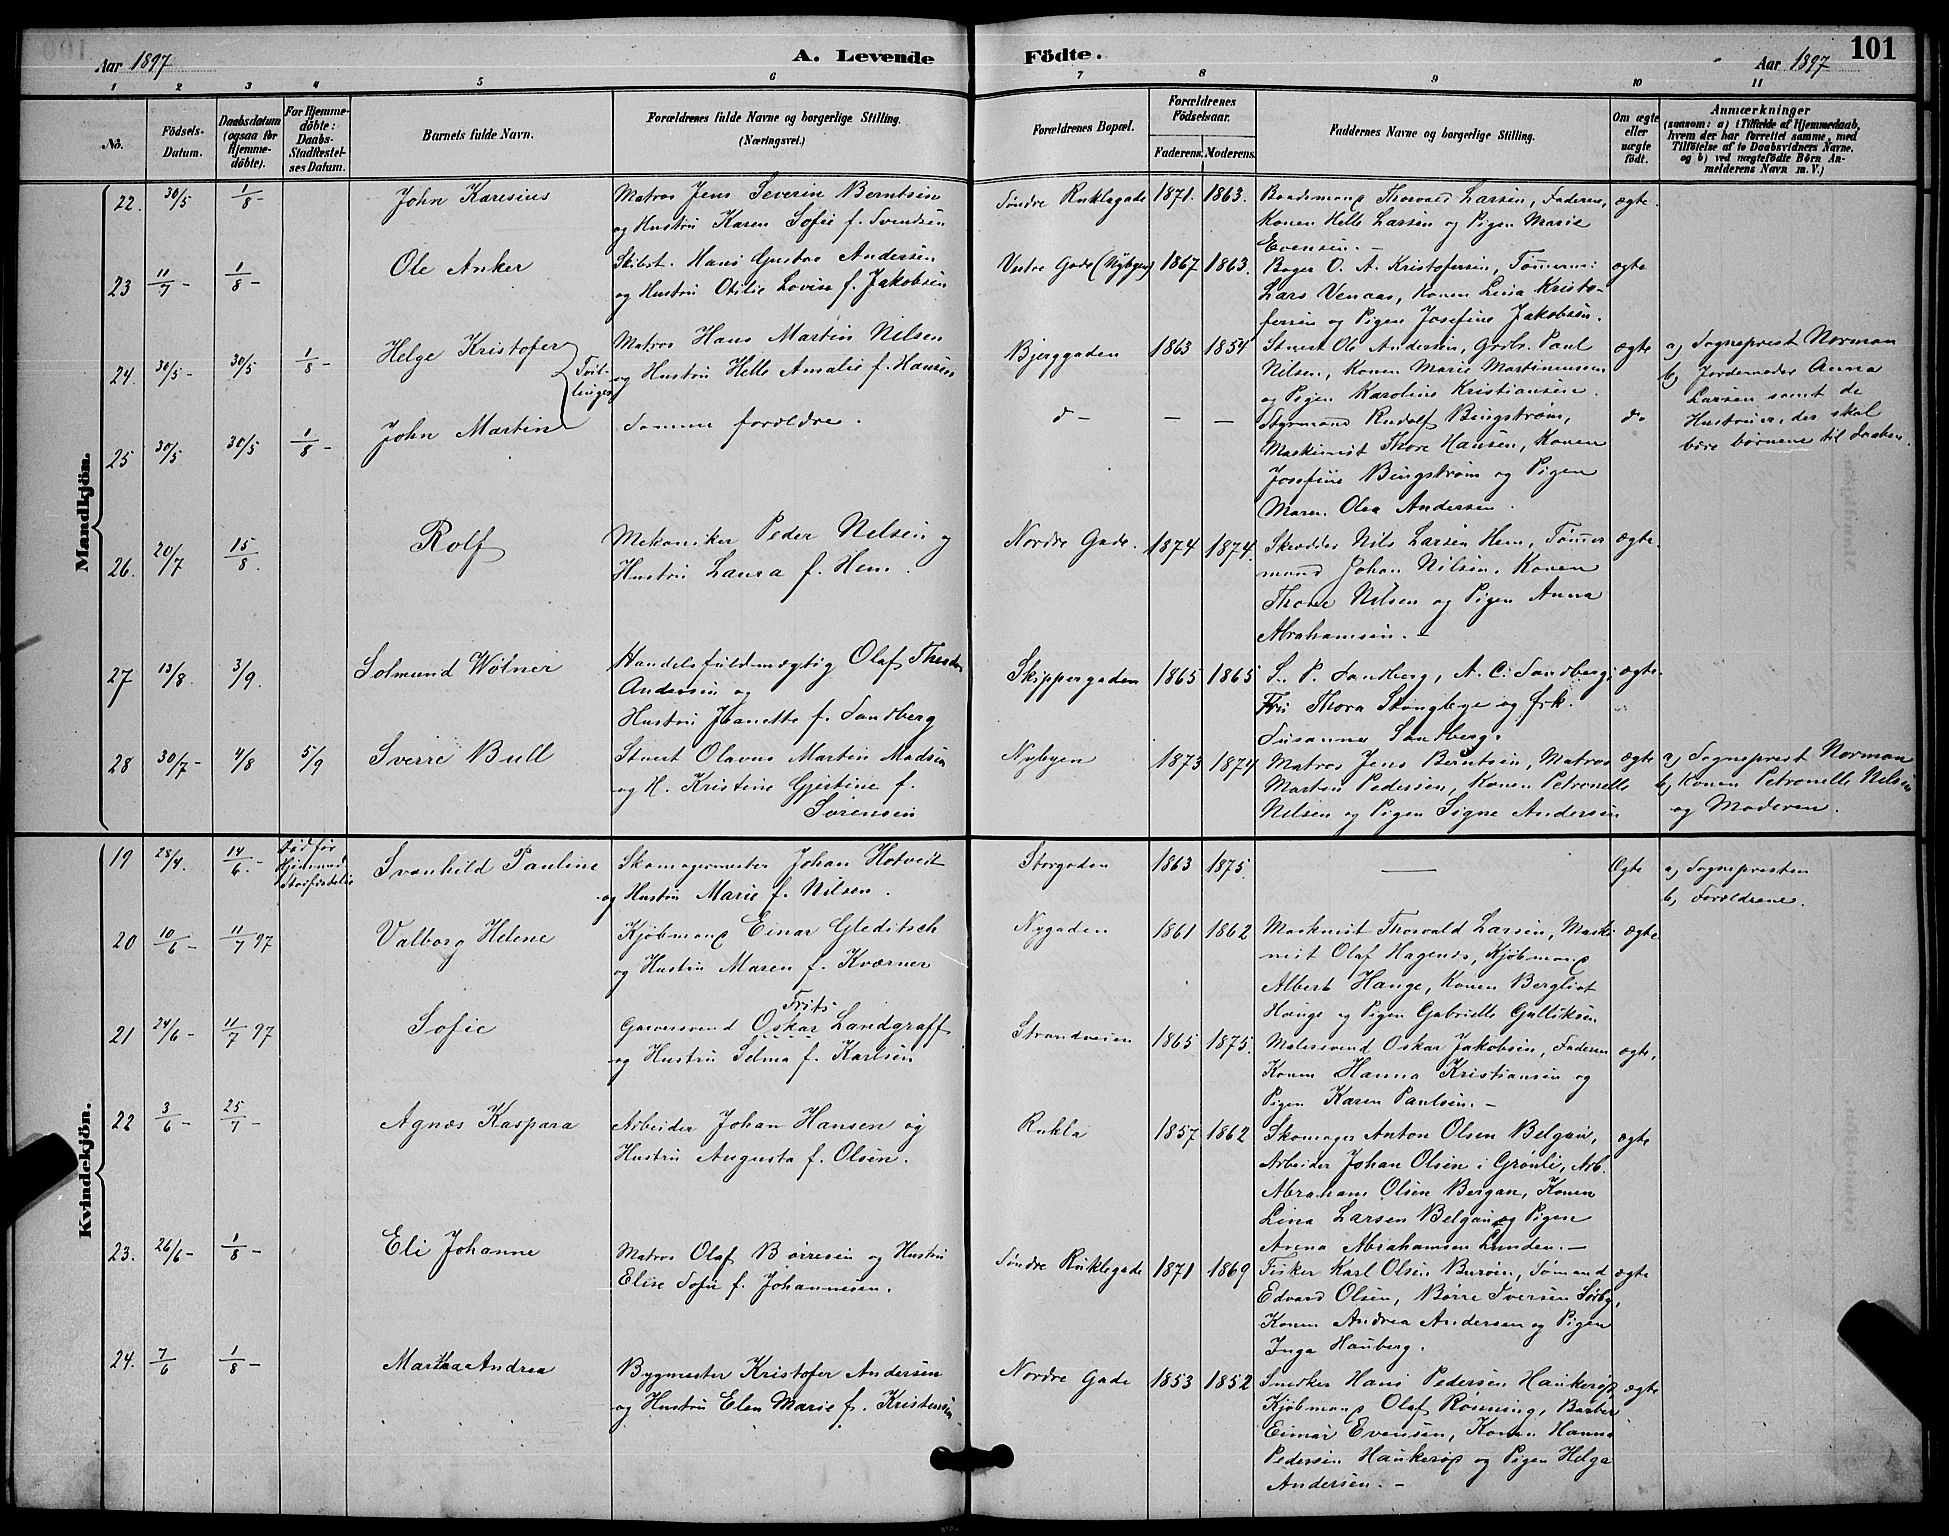 Aar 1897
A. Levende
Födte.
Aar 1897
101
1 2 3 4 5 6 7 8 9 10 11
No.
Födsels-
Datum.
Daabsdatum
(ogsaa for
Hjemme-
döbte).
For Hjemme-
döbte:
Daabs-
Stadfæstel-
ses Datum.
Barnets fulde Navn.
Forældrenes fulde Navne og borgerlige Stilling.
(Næringsvei.)
Forældrenes Bopæl.
Forældrenes
Födselsaar.
Faderens. Moderens.
Faddernes Navne og borgerlige Stilling.
Om ægte
eller
uægte
født.
Anmærkninger
(saasom: a) i Tilfælde af Hjemmedaab,
hvem der har forrettet samme, med
Tilföielse af to Daabsvidners Navne.
og b) ved uægtefödte Börn An-
melderens Navn m. V.)
Mandkjön.
22. 30/5 1/8 John Karesius
Matros Jens Severin Berntsen
og Hustru Karen Sofie f. Svendsen
Søndre Ruklagade 1871. 1863.
Baadsmand Thorvald Larsen, Faderen,
Konen Helle Larsen og Pigen Marie
Evensen. –
ægte.
23 11/7 – 1/8 – Ole Anker
Skibst. Hans Gustav Andersen
og Hustru Otilie Lovise f. Jakobsen
Vestre Gade (Nybyen) 1867 1863.
Bager O. A. Kristofersen, Tømerm:
Lars Venaas, Konen Lina Kristo-
fersen og Pigen Josefine Jakobsen.
ægte
24. 30/5 – 30/5 1/8 – Helge Kristofer
Tvil-
linger
Matros Hans Martin Nilsen
og Hustru Helle Amalie f. Hansen
Bjerggaden 1863 1854
Stuert Ole Andersen, Grdbr. Paul
Nilsen, Konen Marie Martinussen
og Pigen Karoline Kristiansen.
ægte
a) Sogneprest Norman
b) Jordemoder Anna
Larsen samt de
Hustruer, der skal
bære børnene til daaben.
25 30/5 30/5 1/8 – John Martin
Samme forældre.
d– – –
Styrmand Rudolf Bengstrøm,
Maskinist Thore Hansen, Konen
Josefine Bengstrøm og Pigen
Maren Olea Andersen.
do
26. 20/7 15/8. Rolf
Mekaniker Peder Nilsen og
Hustru Laura f. Hem.
Nordre Gade. 1874 1874.
Skrædder Nils Larsen Hem, Tømmer
mand Johan Nilsen, Konen
Thora Nilsen og Pigen Anna
Abrahamsen. –
ægte.
27 13/8. 3/9. Solmund Wølner
Handelsfuldmægtig Olaf Theodor
Andersen og
Hustru Jeanette f. Sandberg
Skippergaden 1865 1865
L. P. Sandberg, A. C. Sandberg,
Fru Thora Stanglege og frk.
Susanna Sandberg.
ægte.
28 30/7 – 4/8 5/9 Sverre Bull
Stuert Olavus Martin Madsen
og H. Kristine Gjertine f.
Sørensen
Nybyen 1873 1874
Matros Jens Berntsen, Matros
Martin Pedersen, Konen Petronelle
Nilsen og Pigen Signe Andersen
ægte
a) Sogneprest Norman
b) Konen Petronelle Nilsen
og Moderen.
Kvindekjön.
19 28/4. 14/6. – død før
Svanhild Pauline
Skomagermester Johan Hotvedt
og Hustru Marie f. Nilsen.
Storgaden 1863 1875.
–
Ægte
a) Sognepresten
b) Forældrene.
20 10/6 – 11/7 97 Valborg Helene
Kjøbmand Einar Gleditsch
og Hustru Maren f. Kværner
Nygaden 1861 1862
Maskinist Thorvald Larsen, Maski-
nist Olaf Hagenes, Kjøbmand
Albert Hauge, Konen Bergliot
Hauge og Pigen Gabrielle Gulliksen
ægte
21 24/6 – 11/7 97 Sofie
Frits
Garversvend Oskar Landgraff
og Hustru Selma f. Karlsen
Strandveien 1865 1875.
Malersvend Oskar Jakobsen, Faderen
Konen Hanna Kristiansen og
Pigen Karen Paulsen. –
ægte,
22 3/6 – 25/7 – Agnes Kaspara
Arbeider Johan Hansen og
Hustru Augusta f. Olsen.
Rukla 1857 1862
Skomager Anton Olsen Belgan,
Arbeider Johan Olsen i Grønli, Arb.
Abraham Olsen Bergan, Konen
Lina Larsen Belgan og Pigen
Anna Abrahamsen Lunden. –
ægte
23. 26/6 – 1/8 – Eli Johanne
Matros Olaf Børresen og Hustru
Elise Sofie f. Johannesen.
Søndre Ruklegade 1871 1869
Fisker Karl Olsen Burøen, Sømand
Edvard Olsen, Børre Iversen Sørby,
Konen Andrea Andersen og Pigen
Inga Hauberg.
ægte
24. 7/6 1/8 – Martha Andrea
Bygmester Kristofer Andersen
og Hustru Elen Marie f. Kristensen
Nordre Gade 1853 1852
Snedker Hans Pedersen Haukerøp,
Kjøbmand Olaf Rønning, Barber
Eimar Evensen, Konen Hanna
Pedersen Haukerøp og Pigen Helga
Andersen. –
ægte